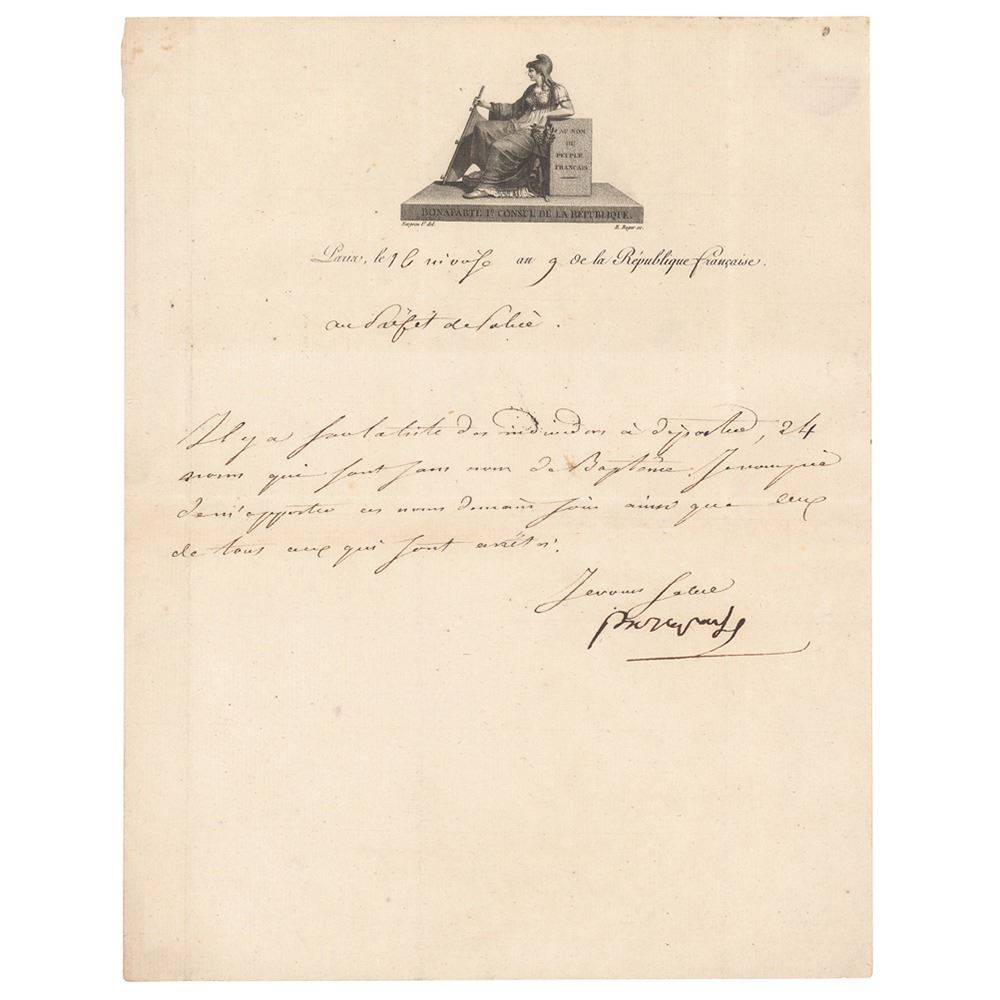 AU NOM
DU
PEUPLE
FRANÇAIS
BONAPARTE 1er CONSUL DE LA REPUBLIQUE.
Naigeon Ft. del.
B. Roger sc.
Paris, le 16 nivose an 9 de la République française.
au Préfet de Police.
Il y a sur la liste des individus à déporter, 24
noms qui sont sans nom de Baptême. Je vous prie
de m'apporter ces noms demain soir ainsi que ceux
de tous ceux qui sont arrêtés.
Je vous salue
Bonaparte